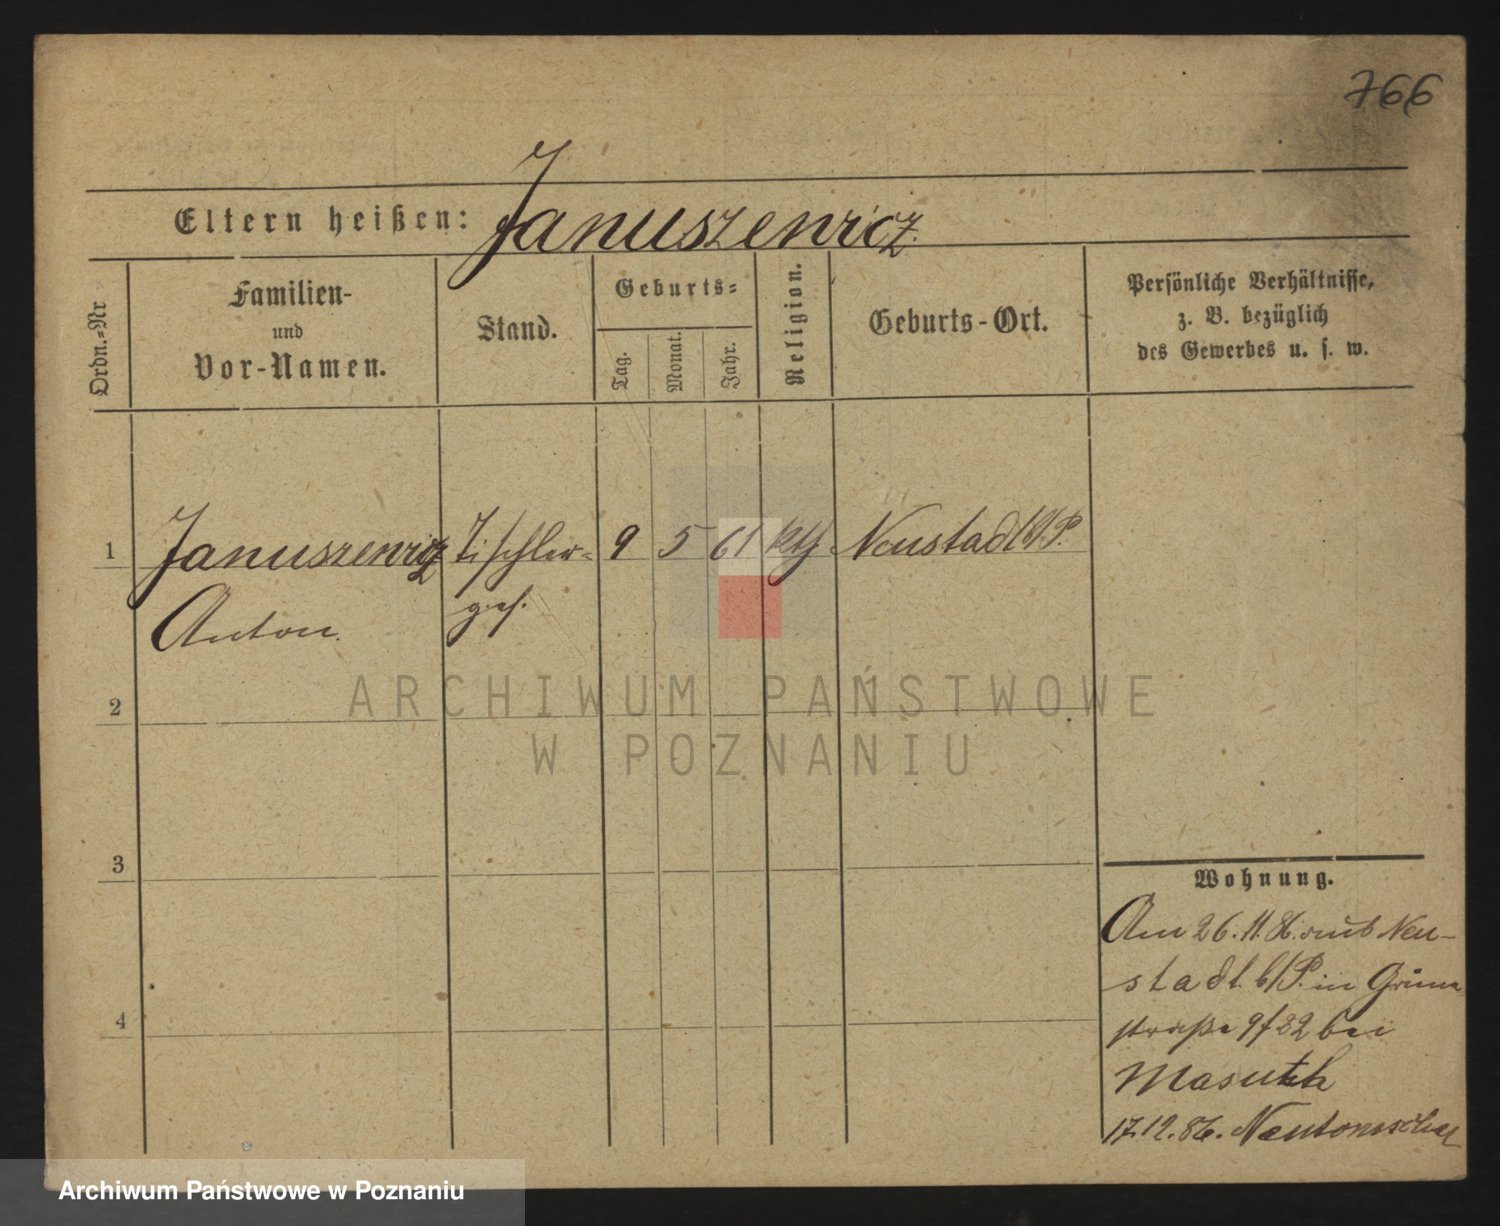 766
Eltern heißen: Januszewicz.
Ordn.-Nr
Familien-
und
Vor-Namen.
Stand.
Geburts-
Tag.
Monat.
Jahr.
Religion.
Geburts-Ort.
Persönliche Verhältnisse,
z. B. bezüglich
des Gewerbes u. s. w.
1 Januszewicz Tischler- 9 5 61 kth Neustadt b/P.
Anton. ges.
2
3
4
Wohnung.
Am 26.11.86. aus Neu-
stadt b/P. in Grüne
straße 9/32 bei
17.12.86. Neutomischel
ARCHIWUM PAŃSTWOWE
W POZNANIU
Archiwum Państwowe w Poznaniu